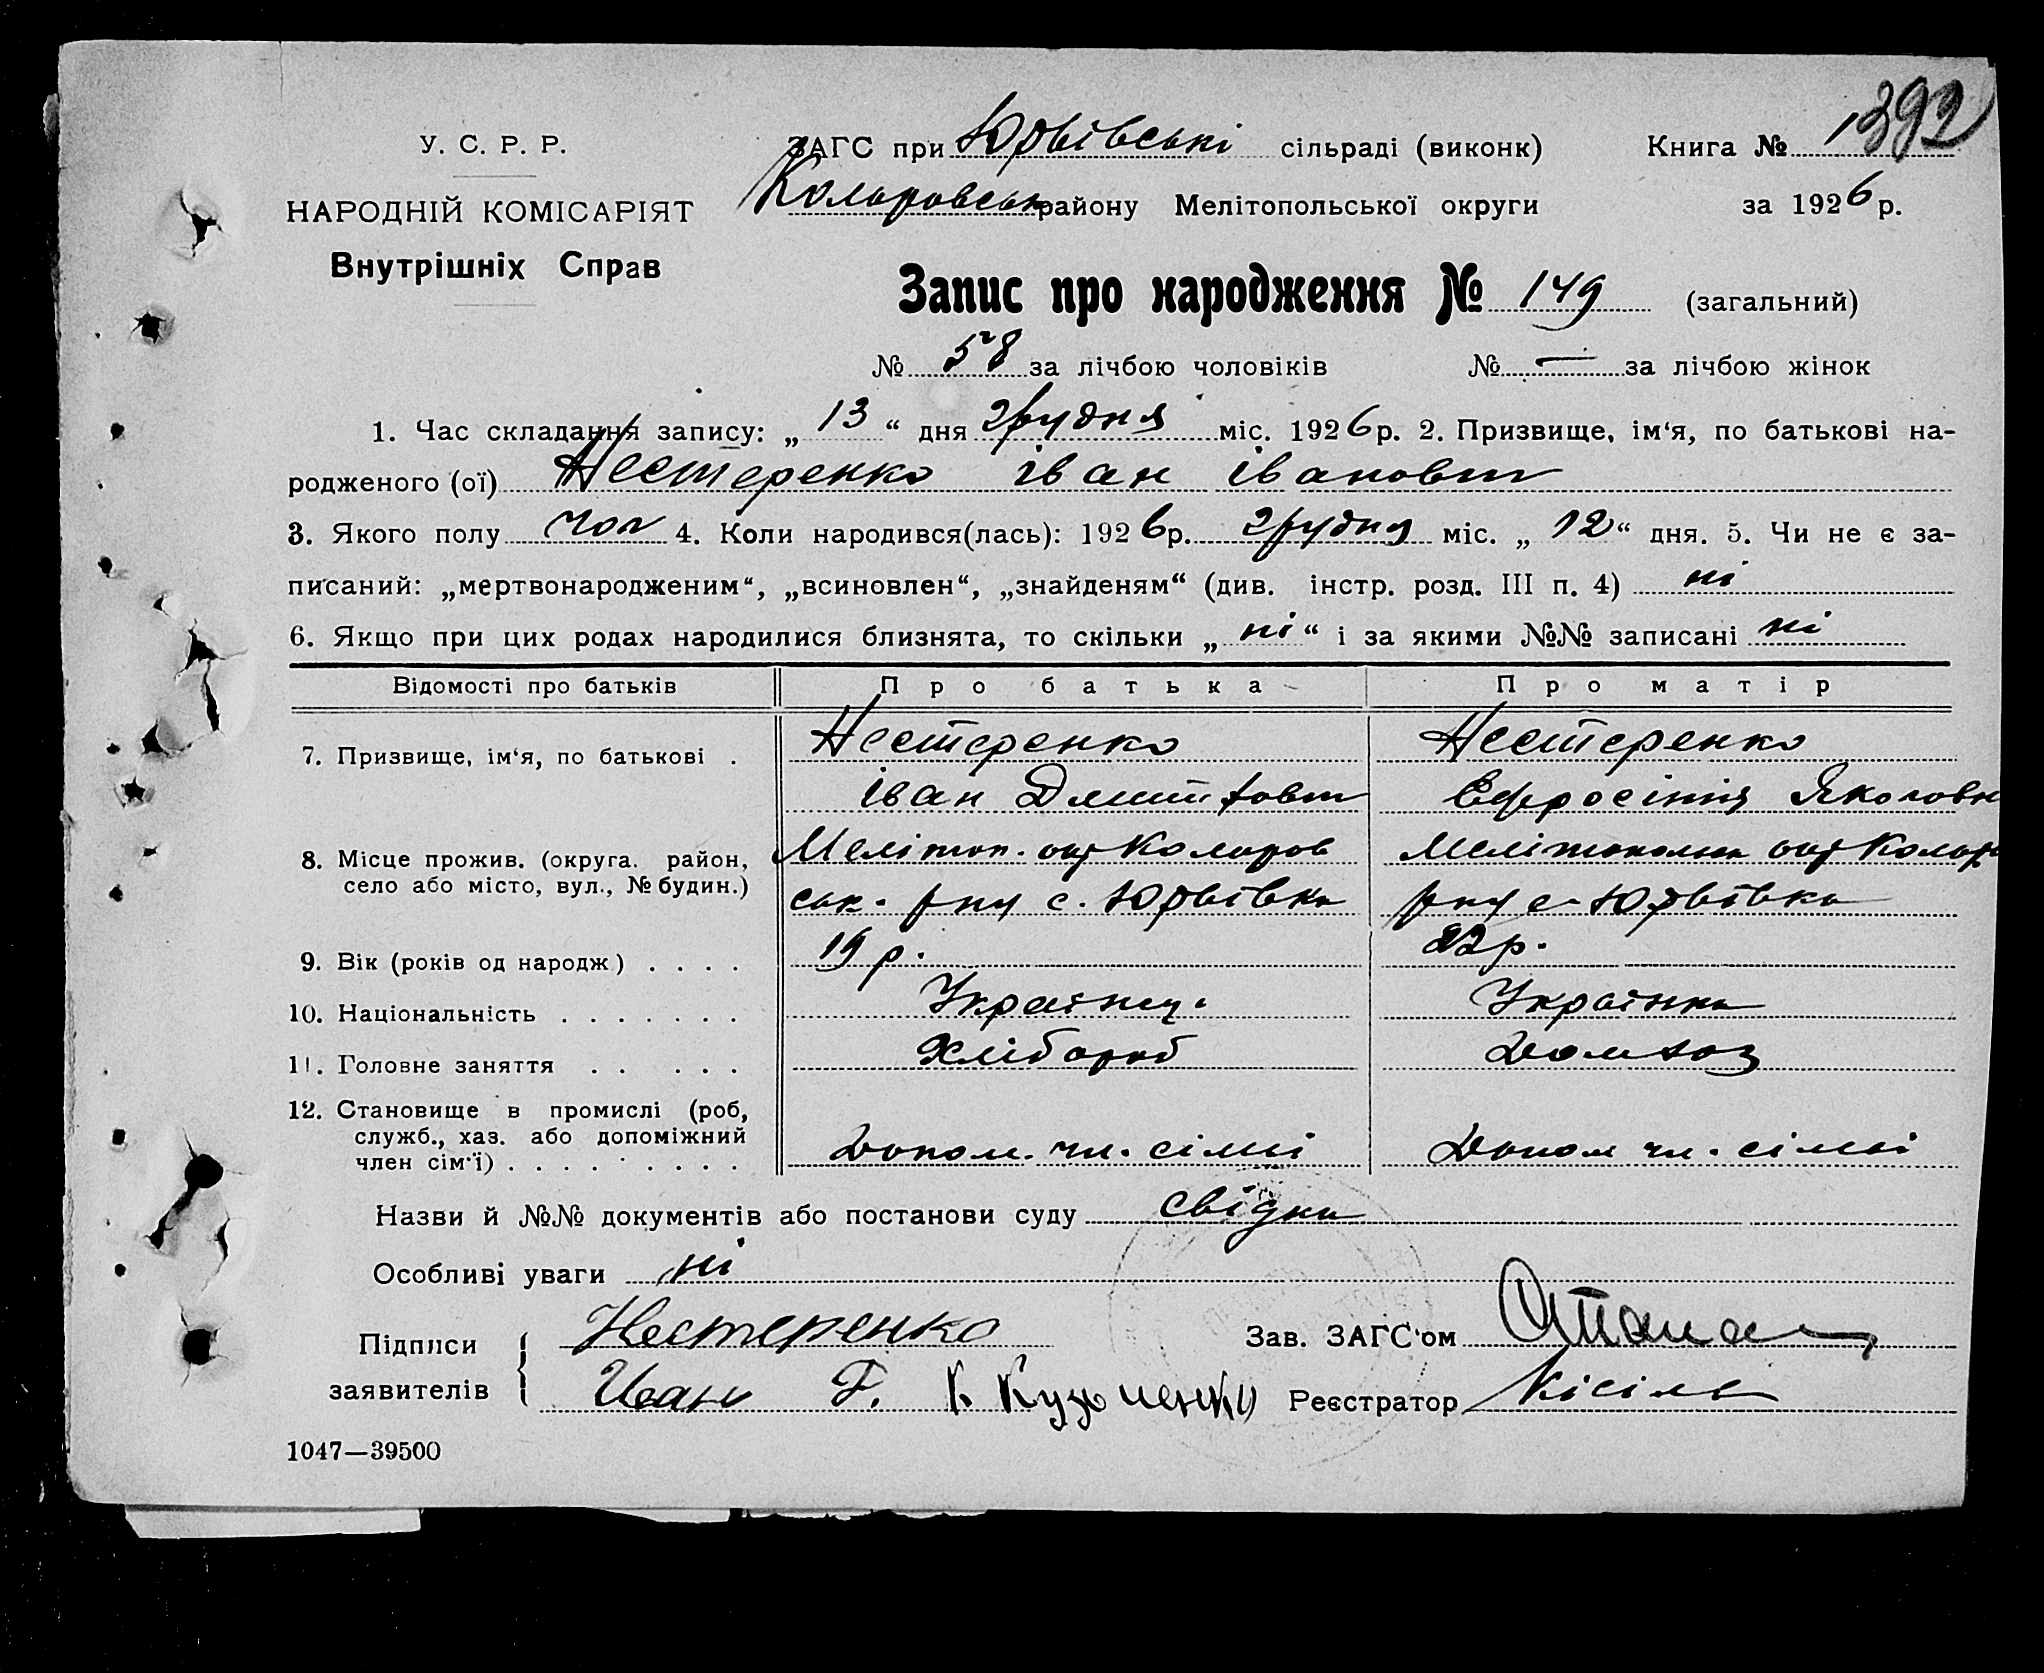 У. С. Р. Р.
НАРОДНІЙ КОМІСАРІЯТ
Внутрішніх Справ
ЗАГС при Юрьівські сільраді (виконк)
Коларовськ району Мелітопольської округи
Книга № 1392
за 1926 р.
Запис про народження № 149 (загальний)
№ 58 за лічбою чоловіків № — за лічбою жінок
1. Час складання запису: „ 13 “ дня грудня міс. 1926 р. 2. Призвище, ім‘я, по батькові на-
родженого (ої) Нестеренко Іван Іванович
3. Якого полу чол 4. Коли народився(лась): 1926 р. грудня міс. „ 12 “ дня. 5. Чи не є за-
писаний: „мертвонародженим“, „всиновлен“, „знайденям“ (див. інстр. розд. III п. 4) ні
6. Якщо при цих родах народилися близнята, то скільки „ ні “ і за якими №№ записані ні
Відомості про батьків Про батька Про матір
7. Призвище, ім‘я, по батькові . Нестеренко Нестеренко
Іван Дмитрович Ефросінія Якововн
8. Місце прожив. (округа. район, Мелітоп. окр Коларов Мелітопольськ окр Колар
село або місто, вул., № будин.) ськ. р-ну с. Юрьівка р-ну с. Юрьівка
9. Вік (років од народж) . . . . 19 р. 22 р.
10. Національність . . . . . . . Українец. Українка
11. Головне заняття . . . . . Хлібороб Домхоз
12. Становище в промислі (роб,
служб., хаз. або допоміжний
член сім‘ї) . . . . . . . . . Допом. чл. сімї Допом чл. сімї
Назви й №№ документів або постанови суду свідки
Особливі уваги ні
Підписи Нестеренко Зав. ЗАГС‘ом
заявителів Иван Д. К Кузьменко Реєстратор Кісіль
1047—39500